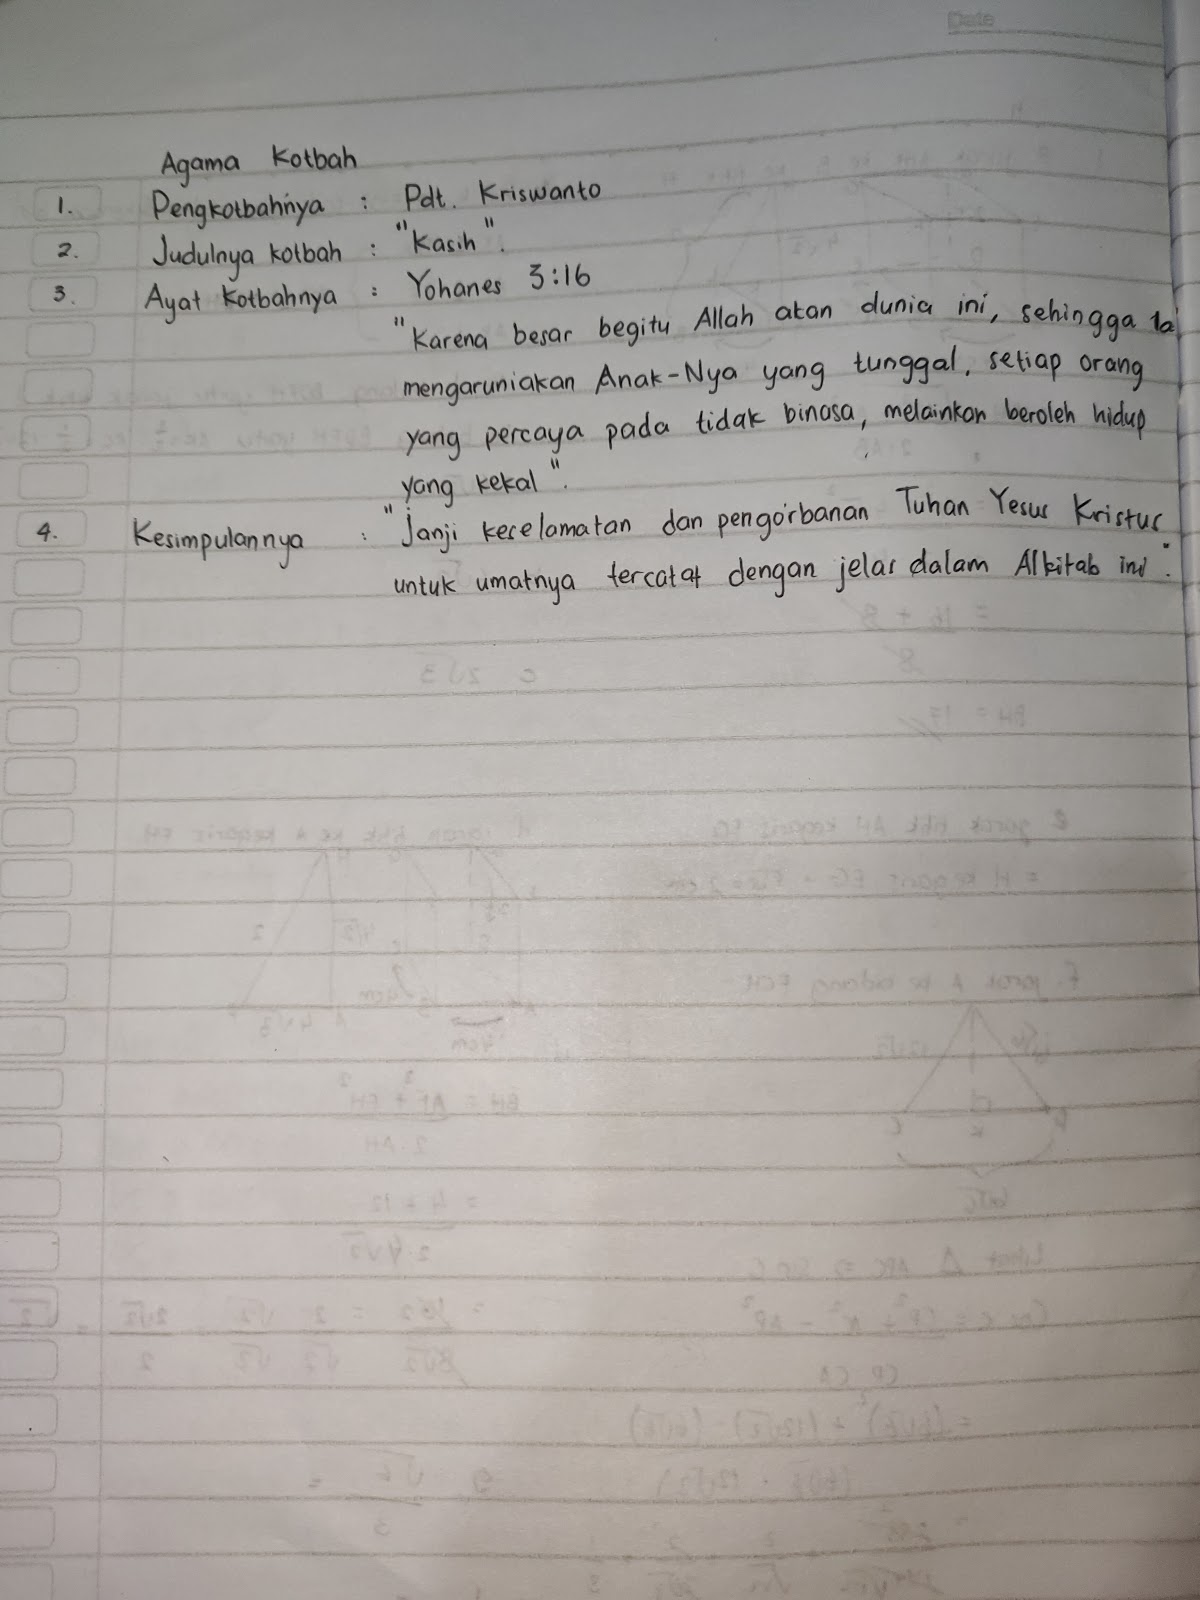 Date
Agama Kotbah
1. Pengkotbahnya : Pdt. Kriswanto
2. Judulnya kotbah : "Kasih".
3. Ayat Kotbahnya : Yohanes 3:16
"Karena besar begitu Allah akan dunia ini, sehingga Ia
mengaruniakan Anak-Nya yang tunggal, setiap orang
yang percaya pada tidak binasa, melainkan beroleh hidup
yang kekal".
4. Kesimpulannya : "Janji keselamatan dan pengorbanan Tuhan Yesus Kristus
untuk umatnya tercatat dengan jelas dalam Alkitab ini".